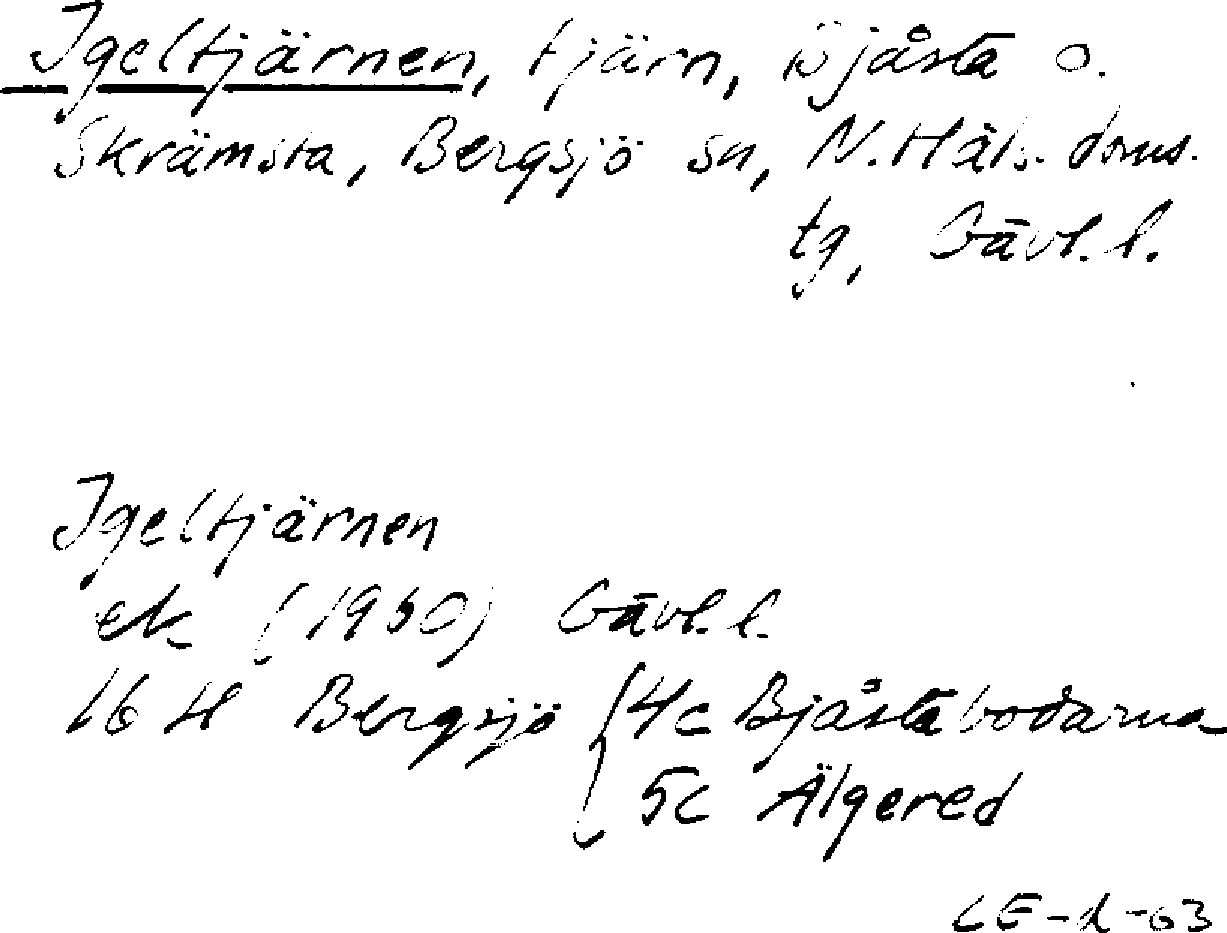 Igeltjärnen, tjärn, Bjåsta o.
Skrämsta, Bergsjö sn, N. Häls. doms.
tg, Gävl. l.
Igeltjärnen
ek (1960) Gävl. l.
16 H Bergsjö { 4c Bjåstabodarna
5c Älgered